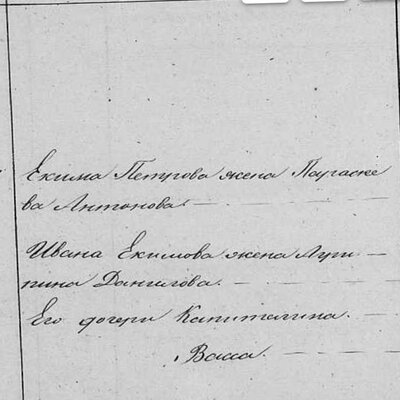 Екима Петрова жена Параске
ва Антонова
Ивана Екимова жена
Данилова.
Его дочери Капиталина.
Васса.